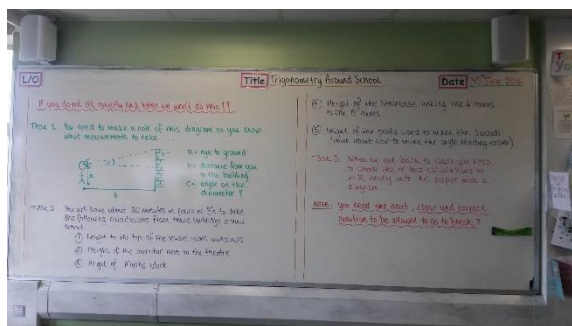 L/O
Title Trigonometry Around School
Date June 2016
If you do not sit quietly and listen we won't do this !!
Task 1. You need to make a note of this diagram so you know
what measurements to take.
a = eye to ground
b = distance from you
to the building
c = angle on the
clinometer ?
a
b
Task 2. You will have about 20 minutes in pairs or 3's to take
the following measurements from these buildings around
school
① Height to the top of the music room windows
② Height of the corridor next to the theatre
③ Height of block
④ Height of the staircase linking the rooms
to the rooms.
⑤ Height of the posts used to make the
(think about how to make the angle reading easier)
Task 3. When we get back to class you need
to choose one of the calculations to
neatly on paper with a
diagram
NOTE: you need one neat, clear and correct
solution to be allowed to go to break.